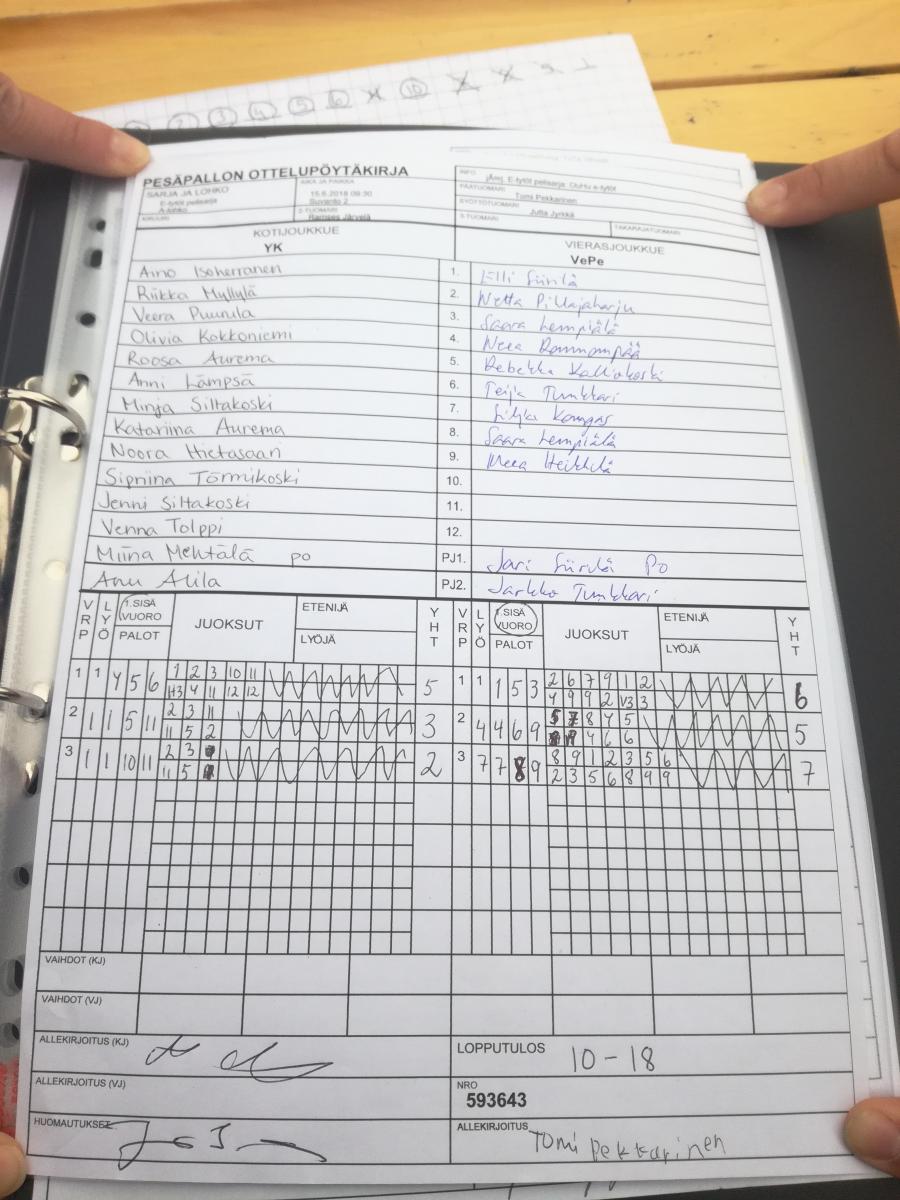 2 3 4 5 6 10
PESÄPALLON OTTELUPÖYTÄKIRJA
SARJA JA LOHKO
E-tytöt pelisarja
A-lohko
KIRJURI
AIKA JA PAIKKA
15.6.2018 09:30
Suvanto 2
2-TUOMARI
Ramses Järvelä
INFO
jAmj. E-tytöt pelisarja: Oulu e-tytöt
PÄÄTUOMARI
Tomi Pekkarinen
SYÖTTÖTUOMARI
Jutta Jyrkkä
3-TUOMARI
TAKARAJATUOMARI
KOTIJOUKKUE
YK
VIERASJOUKKUE
VePe
Aino Isoherranen 1. Elli Siirilä
Riikka Myllylä 2. Netta Pillajaharju
Veera Puurula 3. Saara Lempiälä
Olivia Kokkoniemi 4. Neea Rommonpää
Roosa Aurema 5. Rebekka Kalliokoski
Anni Lämpsä 6. Teija Tunkkari
Minja Siltakoski 7. Silja Kangas
Katariina Aurema 8. Saara Lempiälä
Noora Hietasaari 9. Meea Heikkilä
Sipriina Törmikoski 10.
Jenni Siltakoski 11.
Venna Tolppi 12.
Miina Mehtälä po PJ1. Jari Siirilä Po
Anu Alila PJ2. Jarkko Tunkkari
VRP LYÖ 1.SISÄ VUORO PALOT JUOKSUT ETENIJÄ LYÖJÄ YHT VRP LYÖ 1.SISÄ VUORO PALOT JUOKSUT ETENIJÄ LYÖJÄ YHT
1 1 4 5 6 1 2 3 10 11 5 1 1 1 5 3 2 6 7 9 1 2 6
H3 4 11 12 12 4 9 9 2 V3 3
2 1 1 5 11 2 3 11 3 2 4 4 6 9 5 7 8 4 5 5
11 5 2 4 6 6
3 1 1 10 11 2 3 2 3 7 7 8 9 8 9 1 2 3 5 6 7
11 5 2 3 5 6 8 9 9
VAIHDOT (KJ)
VAIHDOT (VJ)
ALLEKIRJOITUS (KJ)
LOPPUTULOS 10-18
ALLEKIRJOITUS (VJ)
NRO
593643
HUOMAUTUKSET
ALLEKIRJOITUS Tomi Pekkarinen